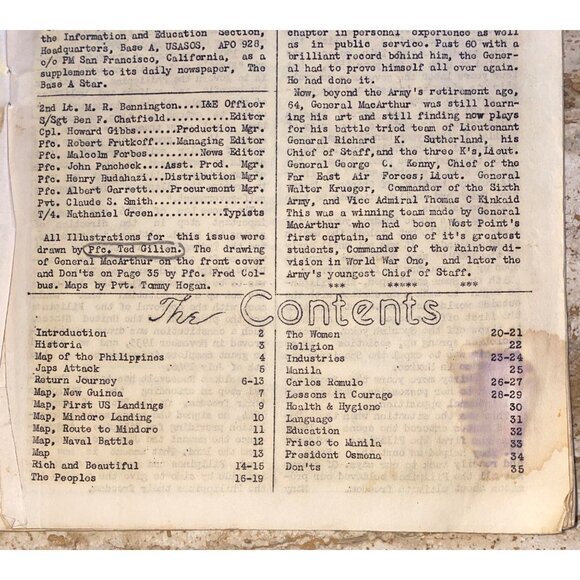 the Information and Education Section,
Headquarters, Base A, USASOS, APO 928,
c/o PM San Francisco, California, as a
supplement to its daily newspaper, The
Base A Star.
2nd Lt. M. R. Bennington....I&E Officer
S/Sgt Ben F. Chatfield...........Editor
Cpl. Howard Gibbs........Production Mgr.
Pfc. Robert Frutkoff....Managing Editor
Pfc. Malcolm Forbes.........News Editor
Pfc. John Pancheck....Asst. Prod. Mgr.
Pfc. Henry Budahazi...Distribution Mgr.
Pfc. Albert Garrett....Procurement Mgr.
Pvt. Claude S. Smith..............
T/4. Nathaniel Green............Typists
All Illustrations for this issue were
drawn by Pfc. Ted Gilien. The drawing
of General MacArthur on the front cover
and Don'ts on Page 35 by Pfc. Fred Col-
bus. Maps by Pvt. Tommy Hogan.
chapter in personal experience as well
as in public service. Past 60 with a
brilliant record behind him, the Gener-
al had to prove himself all over again.
He had done it.
Now, beyond the Army's retirement age,
64, General MacArthur was still learn-
ing his art and still finding now plays
for his battle triod team of Lieutenant
General Richard K. Sutherland, his
Chief of Staff,and the three K's, Lieut.
General George C. Kenny, Chief of the
Far East Air Forces; Lieut. General
Walter Krueger, Commander of the Sixth
Army, and Vice Admiral Thomas C Kinkaid
This was a winning team made by General
MacArthur who had been West Point's
first captain, and one of it's greatest
students, Commander of the Rainbow di-
vision in World War One, and later the
Army's youngest Chief of Staff.
*** ***** ***
The Contents
Introduction 2
Historia 3
Map of the Philippines 4
Japs Attack 5
Return Journey 6-13
Map, New Guinea 7
Map, First US Landings 9
Map, Mindoro Landing 10
Map, Route to Mindoro 11
Map, Naval Battle 12
Map 13
Rich and Beautiful 14-15
The Peoples 16-19
The Women 20-21
Religion 22
Industries 23-24
Manila 25
Carlos Romulo 26-27
Lessons in Courage 28-29
Health & Hygiene 30
Language 31
Education 32
Frisco to Manila 33
President Osmena 34
Don'ts 35